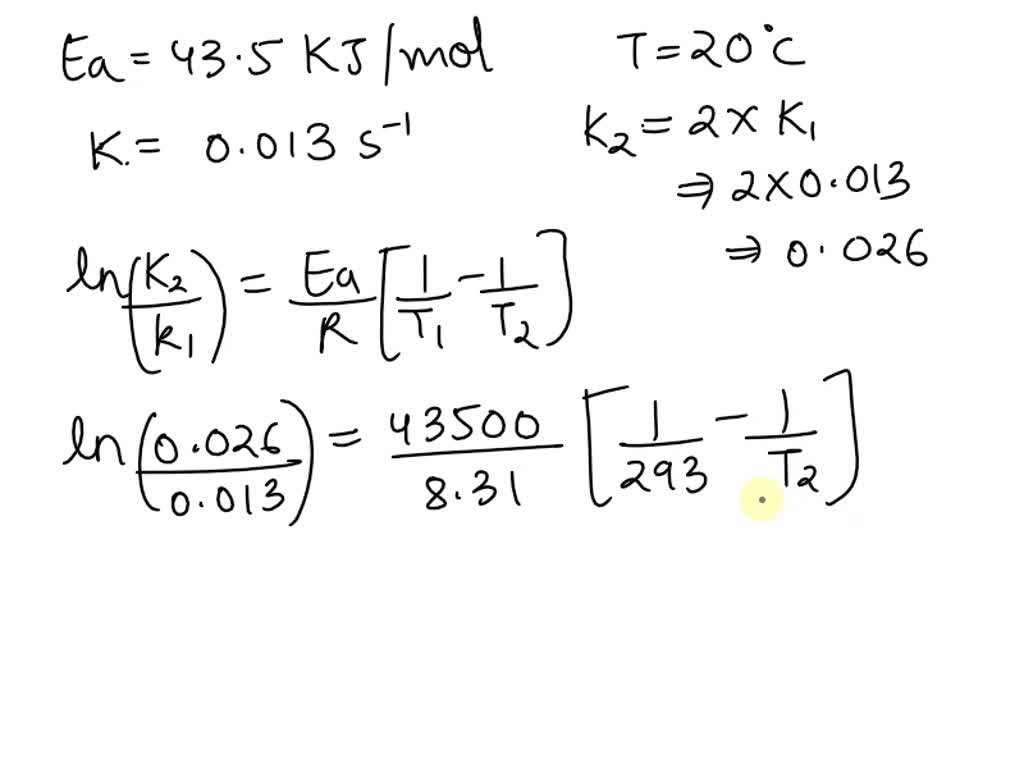 Ea = 43.5 KJ/mol T = 20°C
K = 0.013 s⁻¹ K₂ = 2 × K₁
⇒ 2×0.013
⇒ 0.026
ln(K₂/k₁) = Ea/R [1/T₁ - 1/T₂]
ln(0.026/0.013) = 43500/8.31 [1/293 - 1/T₂]